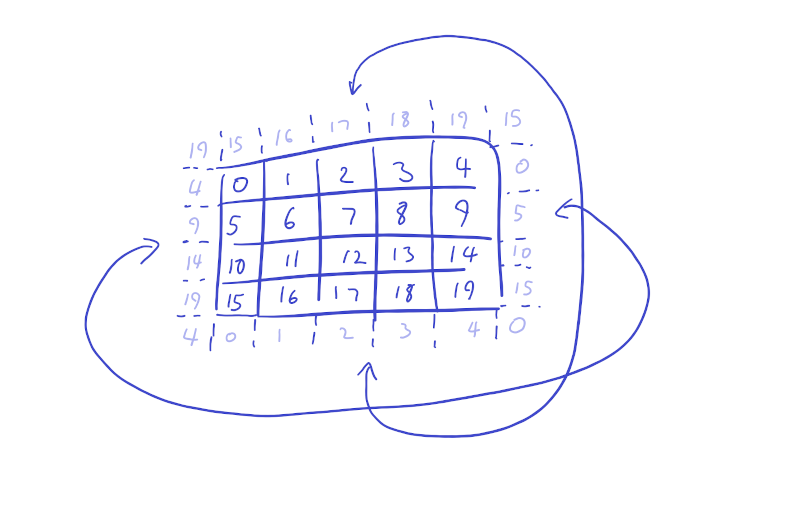 19 15 16 17 18 19 15
4 0 1 2 3 4 0
9 5 6 7 8 9 5
14 10 11 12 13 14 10
19 15 16 17 18 19 15
4 0 1 2 3 4 0